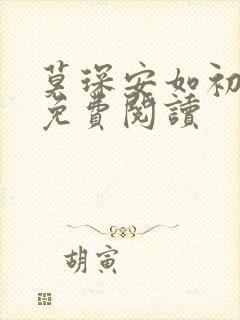 莫琛安如初
免費閱讀
胡寅